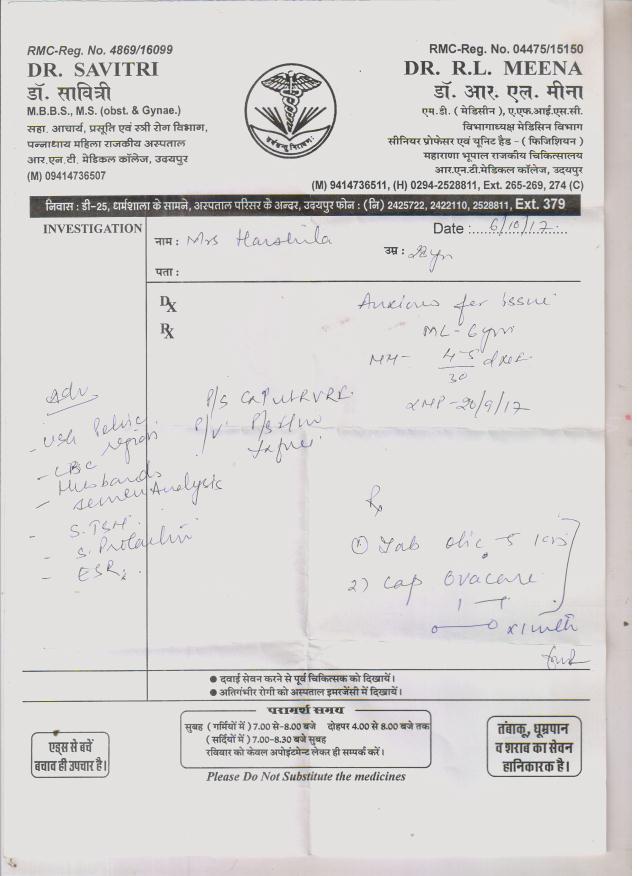 RMC-Reg. No. 4869/16099
DR. SAVITRI
डॉ. सावित्री
M.B.B.S., M.S. (obst. & Gynae.)
सहा. आचार्य, प्रसूति एवं स्त्री रोग विभाग,
पन्नाधाय महिला राजकीय अस्पताल
आर.एन.टी. मेडिकल कॉलेज, उदयपुर
(M) 09414736507
RMC-Reg. No. 04475/15150
DR. R.L. MEENA
डॉ. आर. एल. मीना
एम.डी. ( मेडिसीन ), ए.एफ.आई.एस.सी.
विभागाध्यक्ष मेडिसिन विभाग
सीनियर प्रोफेसर एवं यूनिट हैड - ( फिजिशियन )
महाराणा भूपाल राजकीय चिकित्सालय
आर.एन.टी.मेडिकल कॉलेज, उदयपुर
(M) 9414736511, (H) 0294-2528811, Ext. 265-269, 274 (C)
निवास : डी-25, धर्मशाला के सामने, अस्पताल परिसर के अन्दर, उदयपुर फोन : (नि) 2425722, 2422110, 2528811, Ext. 379
INVESTIGATION
नाम : Mrs Harshila
Date : 6/10/17
उम्र : 28yr
पता :
Dx
Rx
Anxious for issue
ML- 6yrs
MH- 4-5 days
30
LMP-20/9/17
P/S
P/V
Adv
- USG Pelvic
region
- CBC
- Husbands
semen Analysis
- S.TSH
- S. Prolactin
- ESR
Rx
① Tab 5
2) Cap Ovacare
x1mth
● दवाई सेवन करने से पूर्व चिकित्सक को दिखायें।
● अतिगंभीर रोगी को अस्पताल इमरजेंसी में दिखायें।
परामर्श समय
सुबह ( गर्मियों में ) 7.00 से-8.00 बजे दोहपर 4.00 से 8.00 बजे तक
( सर्दियों में ) 7.00-8.30 बजे सुबह
रविवार को केवल अपोइंटमेन्ट लेकर ही सम्पर्क करें।
एड्स से बचें
बचाव ही उपचार है।
तंबाकू, धूम्रपान
व शराब का सेवन
हानिकारक है।
Please Do Not Substitute the medicines